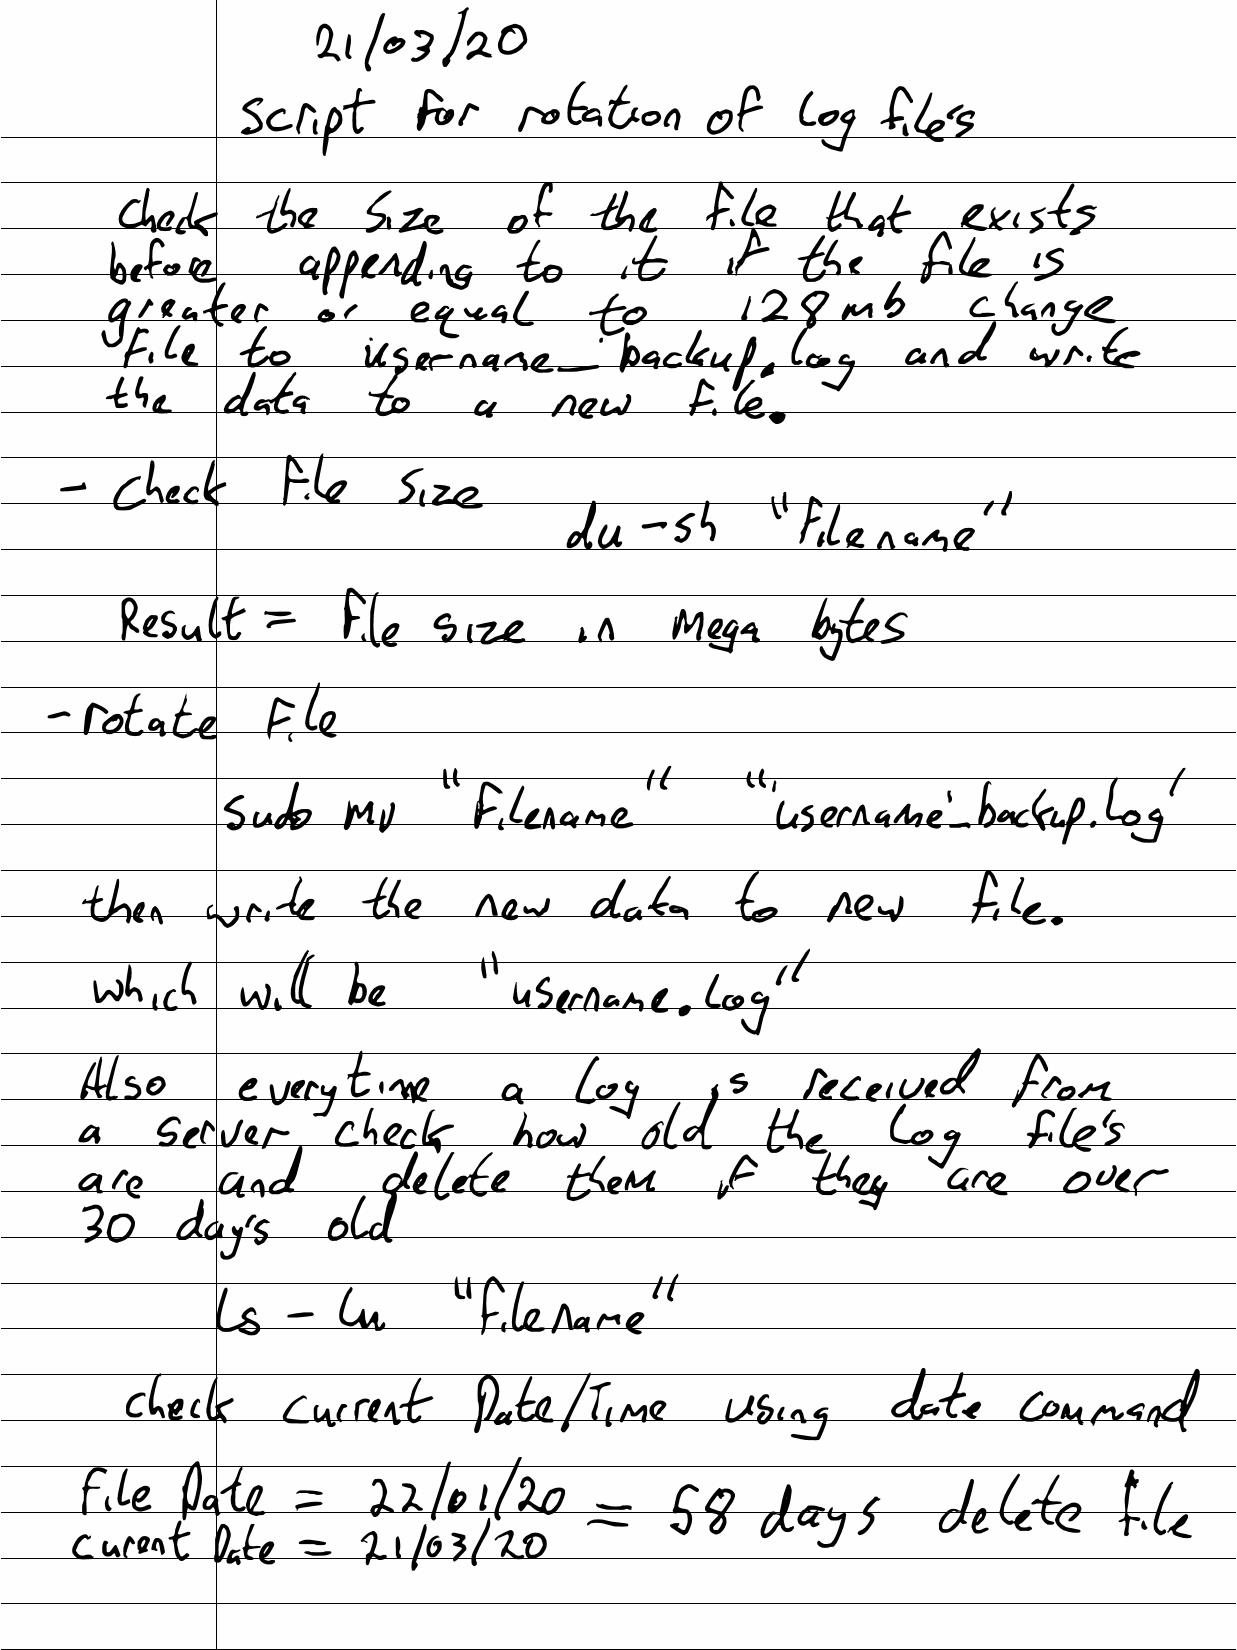 21/03/20
Script for rotation of log file's
Check the size of the file that exists
before appending to it if the file is
greater or equal to 128mb change
file to username_backup.log and write
the data to a new file.
- Check file size
du -sh "Filename"
Result = file size in Mega bytes
- rotate File
sudo mv "Filename" "'username'_backup.log'
then write the new data to new file.
which will be "username.log"
Also everytime a log is received from
a server check how old the log file's
are and delete them if they are over
30 day's old
ls - lu "filename"
check current Date/Time using date command
File Date = 22/01/20 = 58 days delete file
curent Date = 21/03/20